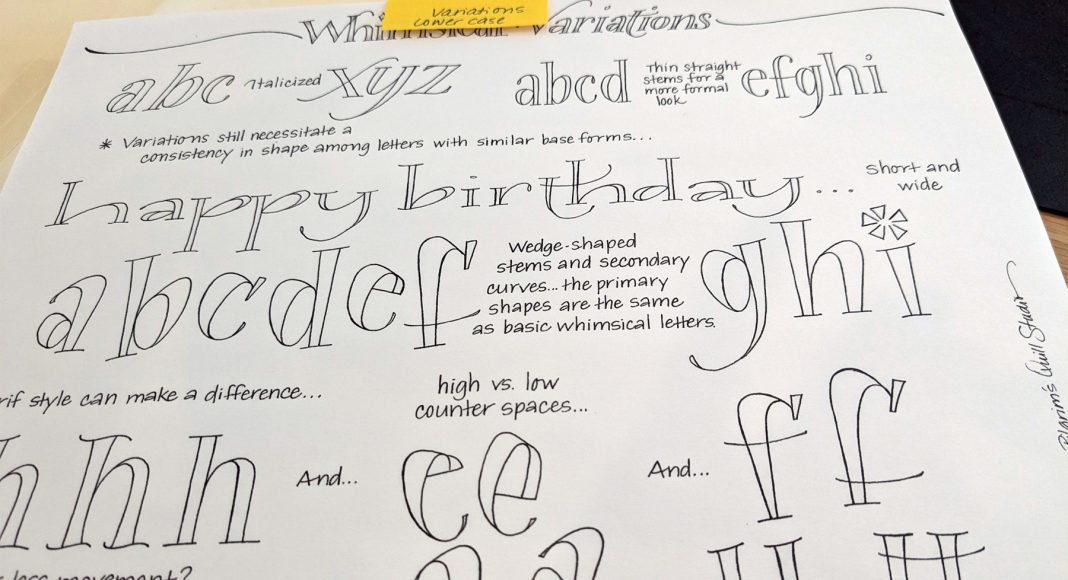 Variations
Lower case
Whimsical Variations
abc Italicized xyz
abcd
Thin straight
stems for a
more formal
look
efghi
* Variations still necessitate a
consistency in shape among letters with similar base forms...
happy birthday...
short and
wide
abcdef
Wedge-shaped
stems and secondary
curves... the primary
shapes are the same
as basic whimsical letters.
ghi
style can make a difference...
high vs. low
counter spaces...
h h h
And...
ee
And...
ff
movement?
Pilgrim's Quill Studio